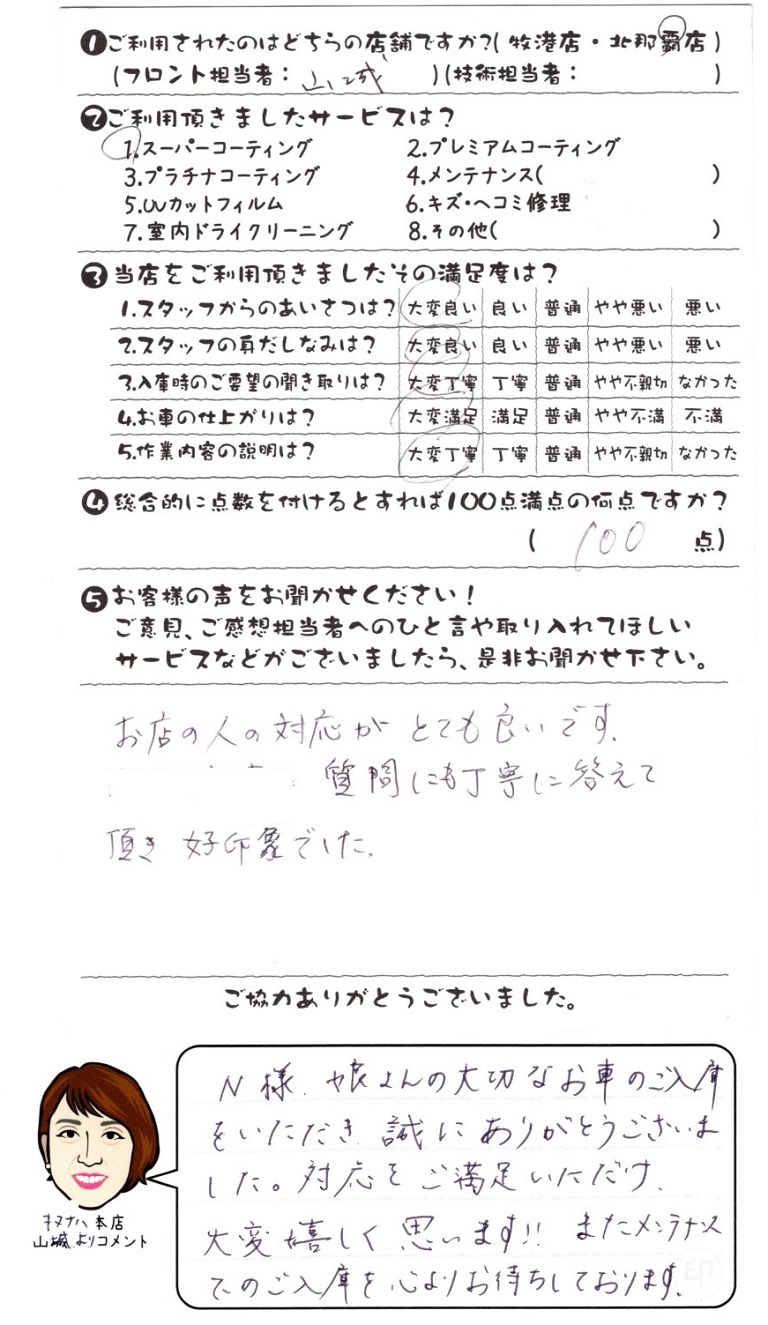 ❶ご利用されたのはどちらの店舗ですか?(牧港店・北那覇店)
(フロント担当者: 山城 )(技術担当者: )
❷ご利用頂きましたサービスは?
1.スーパーコーティング 2.プレミアムコーティング
3.プラチナコーティング 4.メンテナンス( )
5.UVカットフィルム 6.キズ・ヘコミ修理
7.室内ドライクリーニング 8.その他( )
❸当店をご利用頂きましたその満足度は?
1.スタッフからのあいさつは? 大変良い 良い 普通 やや悪い 悪い
2.スタッフの身だしなみは? 大変良い 良い 普通 やや悪い 悪い
3.入庫時のご要望の聞き取りは? 大変丁寧 丁寧 普通 やや不親切 なかった
4.お車の仕上がりは? 大変満足 満足 普通 やや不満 不満
5.作業内容の説明は? 大変丁寧 丁寧 普通 やや不親切 なかった
❹総合的に点数を付けるとすれば100点満点の何点ですか?
( 100 点)
❺お客様の声をお聞かせください!
ご意見、ご感想担当者へのひと言や取り入れてほしい
サービスなどがございましたら、是非お聞かせ下さい。
お店の人の対応がとても良いです。
質問にも丁寧に答えて
頂き好印象でした。
ご協力ありがとうございました。
N様、娘さんの大切なお車のご入庫
をいただき誠にありがとうございま
した。対応をご満足いただけ、
大変嬉しく思います!! またメンテナンス
でのご入庫を心よりお待ちしております。
印
キズナハ本店
山城よりコメント